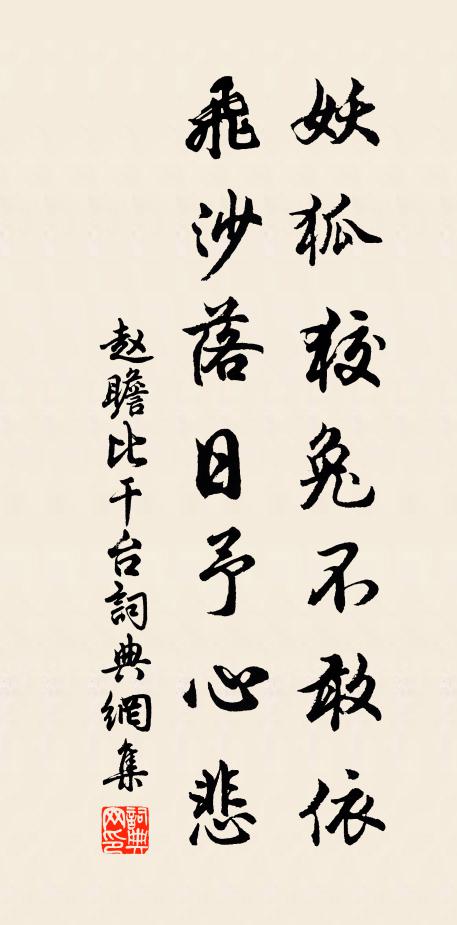 妖狐狡兔不敢依
飛沙落日予心悲
赵瞻比干台詞典網集
詞典網印